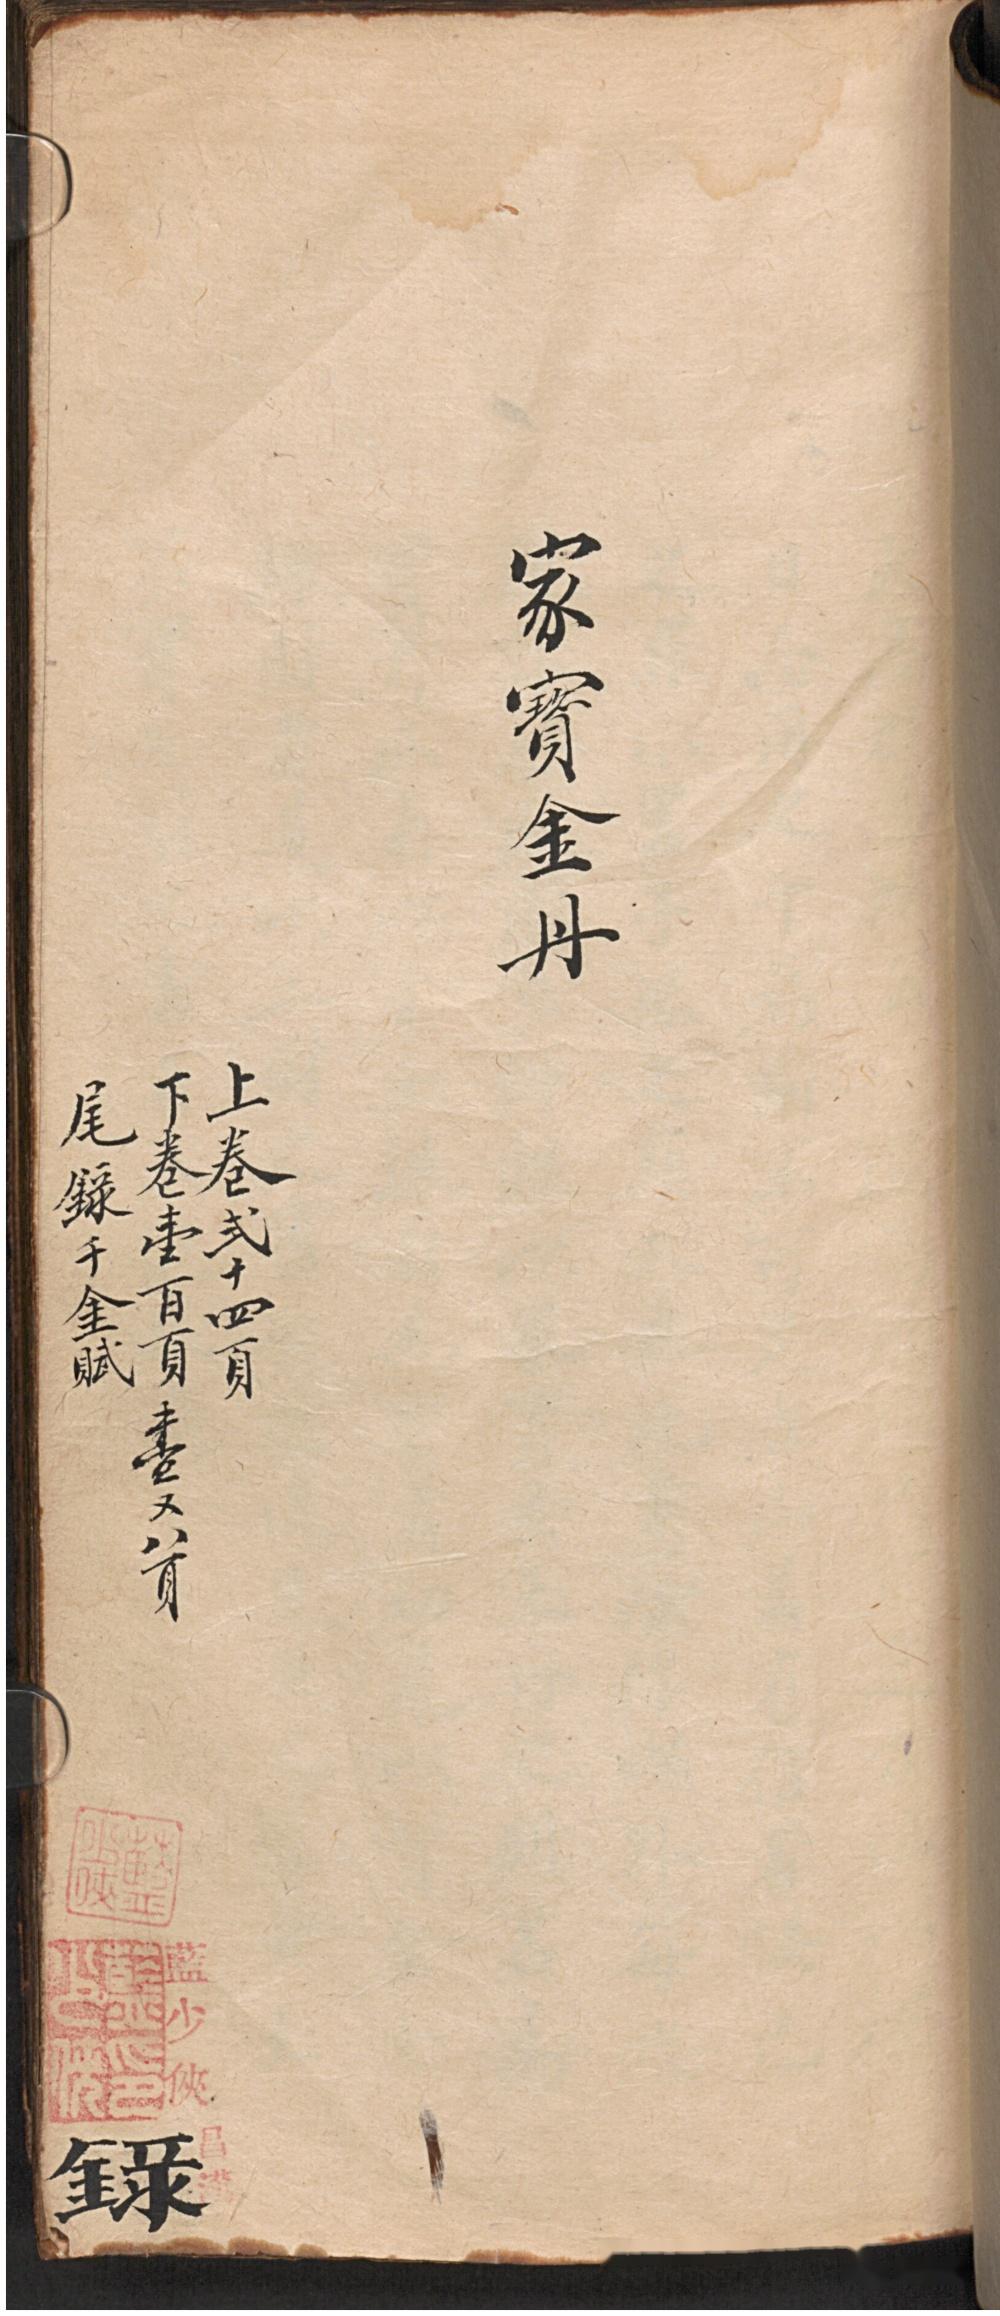 家寶金丹
上卷弍十四頁
下卷壹百頁 壹又八頁
尾錄千金賦
藍少俠
錄